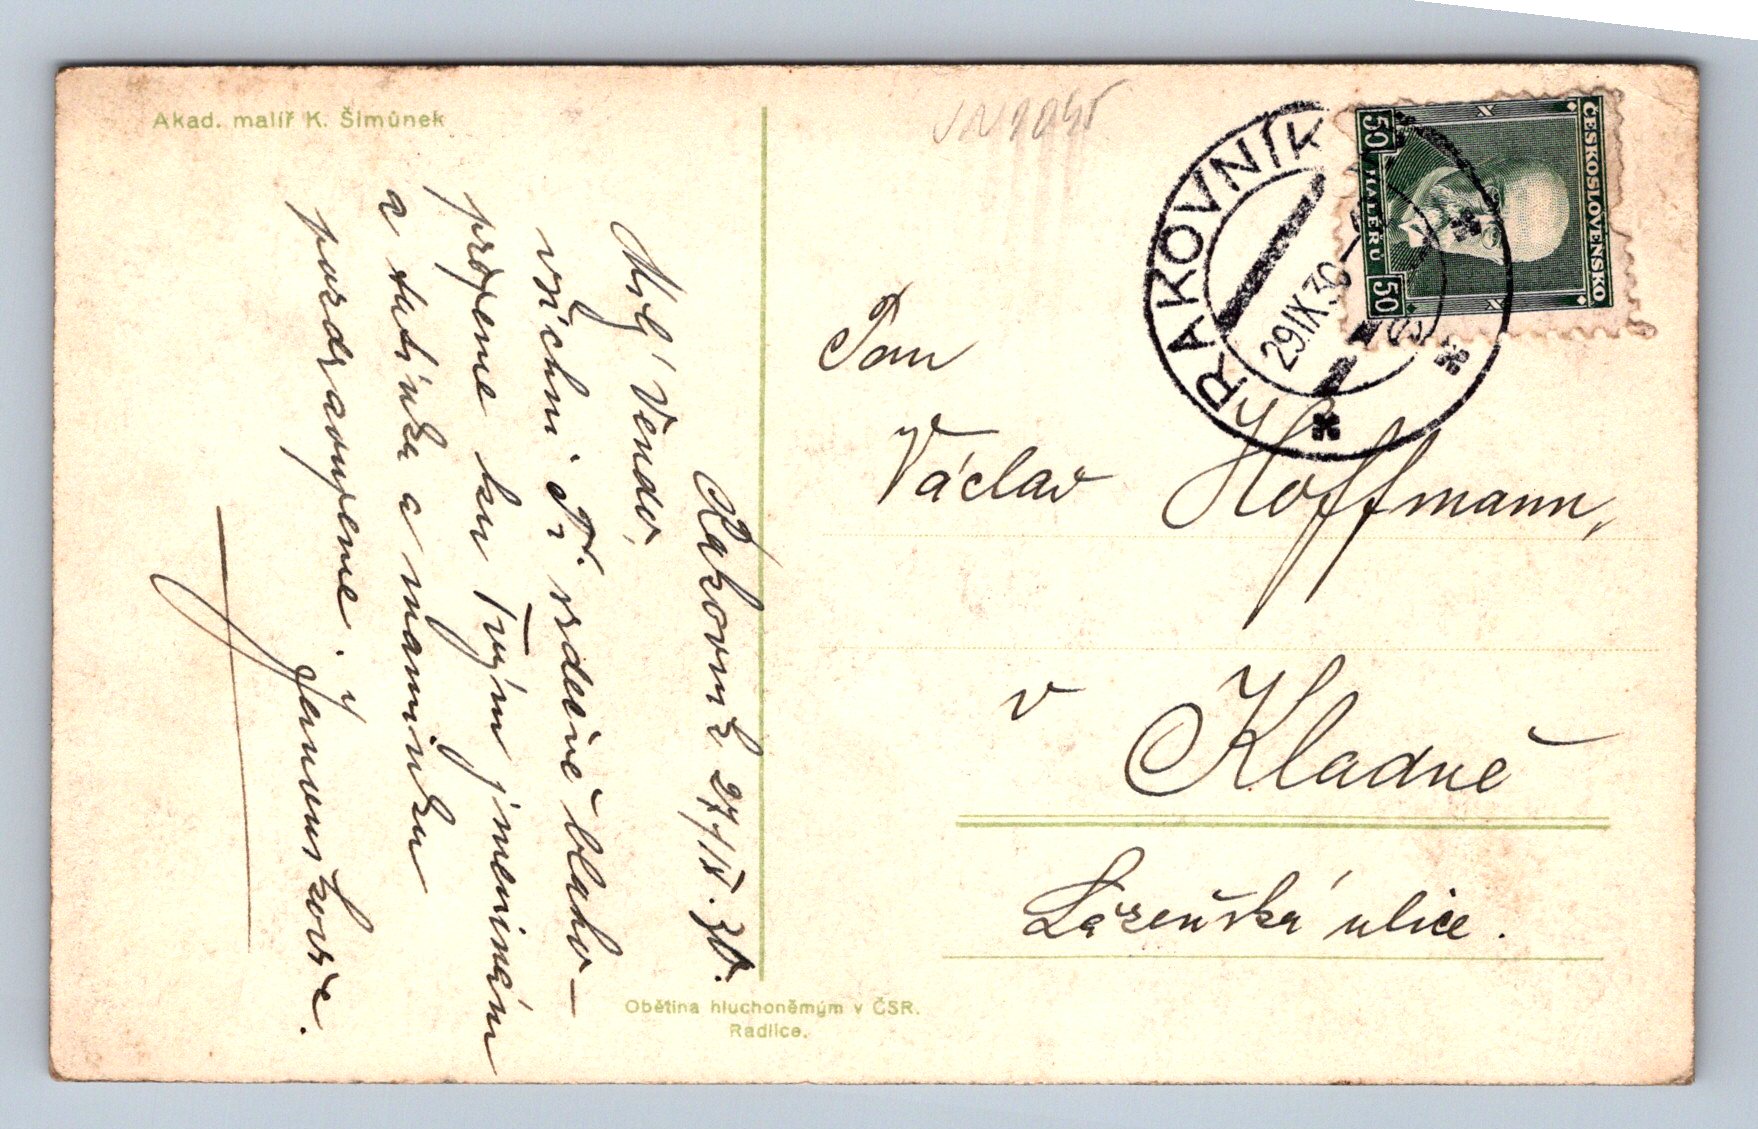 Akad. malíř K. Šimůnek
Rakovník 27/IX. 30.
Milý Vendo,
všichni Ti srdečně blaho-
přejeme ku Tvým jmeninám
a tatínka a maminku
pozdravujeme.
Obětina hluchoněmým v ČSR.
Radlice.
RAKOVNÍK
29.IX.30
ČESKOSLOVENSKO
50 HALÉŘŮ 50
Pan
Václav Hoffmann,
v Kladně
Lázeňská ulice.